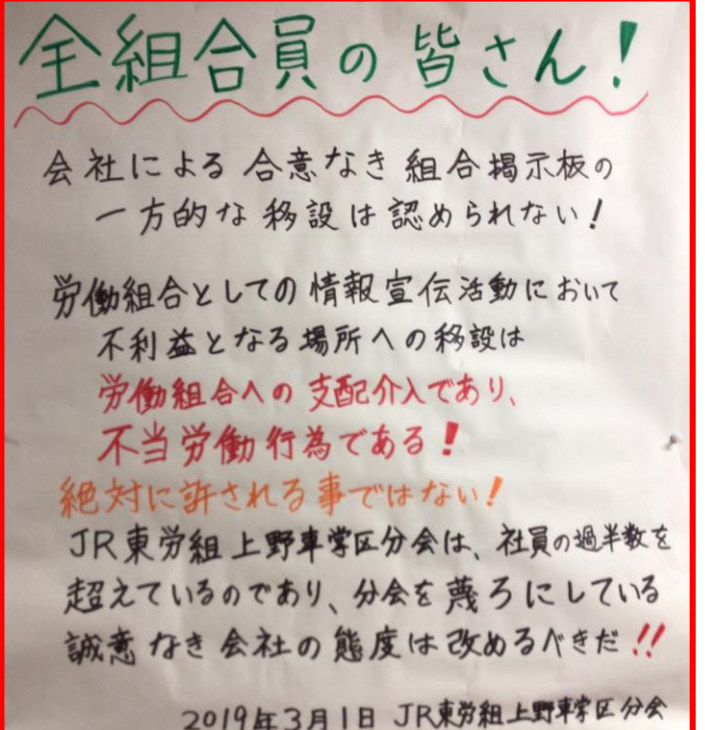 全組合員の皆さん!
会社による合意なき組合掲示板の
一方的な移設は認められない!
労働組合としての情報宣伝活動において
不利益となる場所への移設は
労働組合への支配介入であり、
不当労働行為である!
絶対に許される事ではない!
JR東労組上野車掌区分会は、社員の過半数を
超えているのであり、分会を蔑ろにしている
誠意なき会社の態度は改めるべきだ!!
2019年3月1日 JR東労組上野車掌区分会